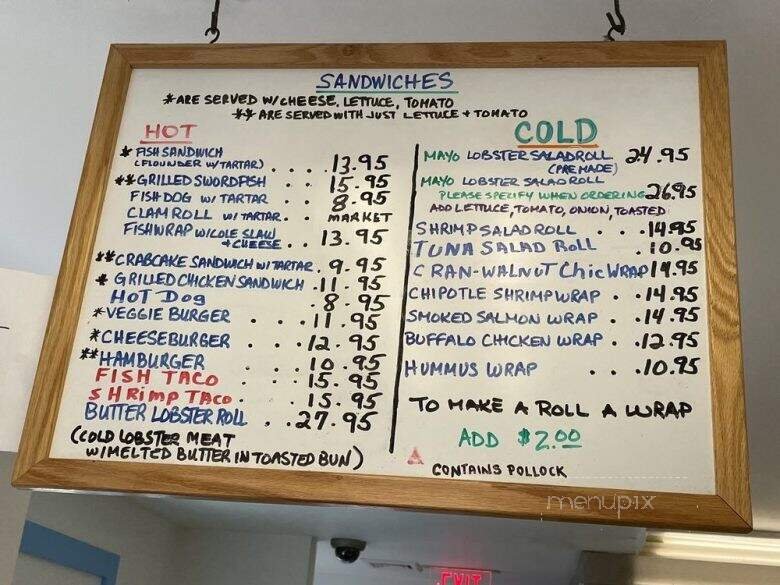 SANDWICHES
*ARE SERVED W/CHEESE, LETTUCE, TOMATO
** ARE SERVED WITH JUST LETTUCE + TOMATO
HOT
* FISH SANDWICH
(FLOUNDER W/TARTAR) . . . . 13.95
**GRILLED SWORDFISH . . 15.95
FISH DOG W/ TARTAR . . 8.95
CLAM ROLL W/ TARTAR . . MARKET
FISHWRAP W/COLE SLAW
+ CHEESE . . 13.95
**CRABCAKE SANDWICH W/TARTAR . 9.95
* GRILLED CHICKEN SANDWICH . 11.95
HOT Dog . 8.95
*VEGGIE BURGER . . . 11.95
*CHEESEBURGER . . 12.95
**HAMBURGER . . 10.95
FISH TACO . . . 15.95
SHRIMP TACO . . . 15.95
BUTTER LOBSTER ROLL . . 27.95
(COLD LOBSTER MEAT
W/MELTED BUTTER IN TOASTED BUN)
COLD
MAYO LOBSTER SALAD ROLL 24.95
(PREMADE)
MAYO LOBSTER SALAD ROLL
PLEASE SPECIFY WHEN ORDERING 26.95
ADD LETTUCE, TOMATO, ONION, TOASTED
SHRIMP SALAD ROLL . . 14.95
TUNA SALAD ROLL . 10.95
CRAN-WALNUT Chic WRAP 14.95
CHIPOTLE SHRIMP WRAP . . 14.95
SMOKED SALMON WRAP . . 14.95
BUFFALO CHICKEN WRAP . . 12.95
HUMMUS WRAP . . . 10.95
TO MAKE A ROLL A WRAP
ADD $2.00
CONTAINS POLLOCK
menupix
EXIT